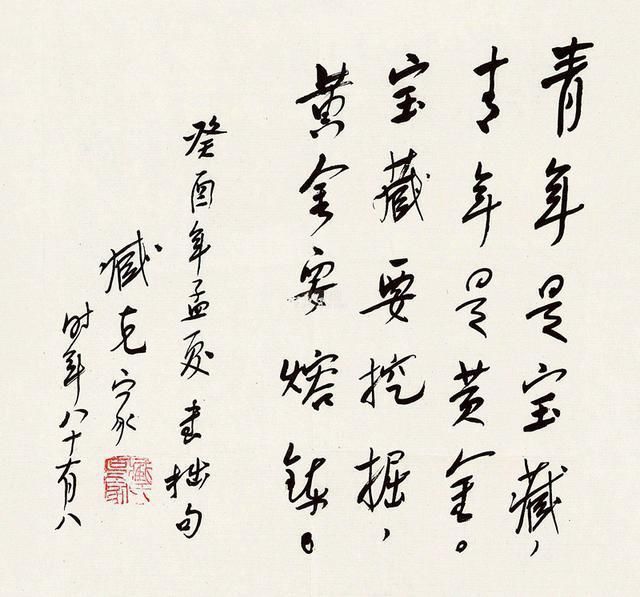 青年是宝藏，
青年是黄金。
宝藏要挖掘，
黄金要熔铸。
癸酉年孟夏書拙句
臧克家
时年八十有八